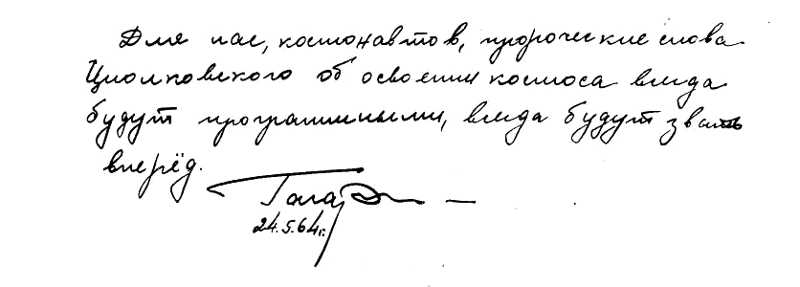 Для нас, космонавтов, пророческие слова
Циолковского об освоении космоса всегда
будут программными, всегда будут звать
вперёд.
Гагарин
24.5.64г.